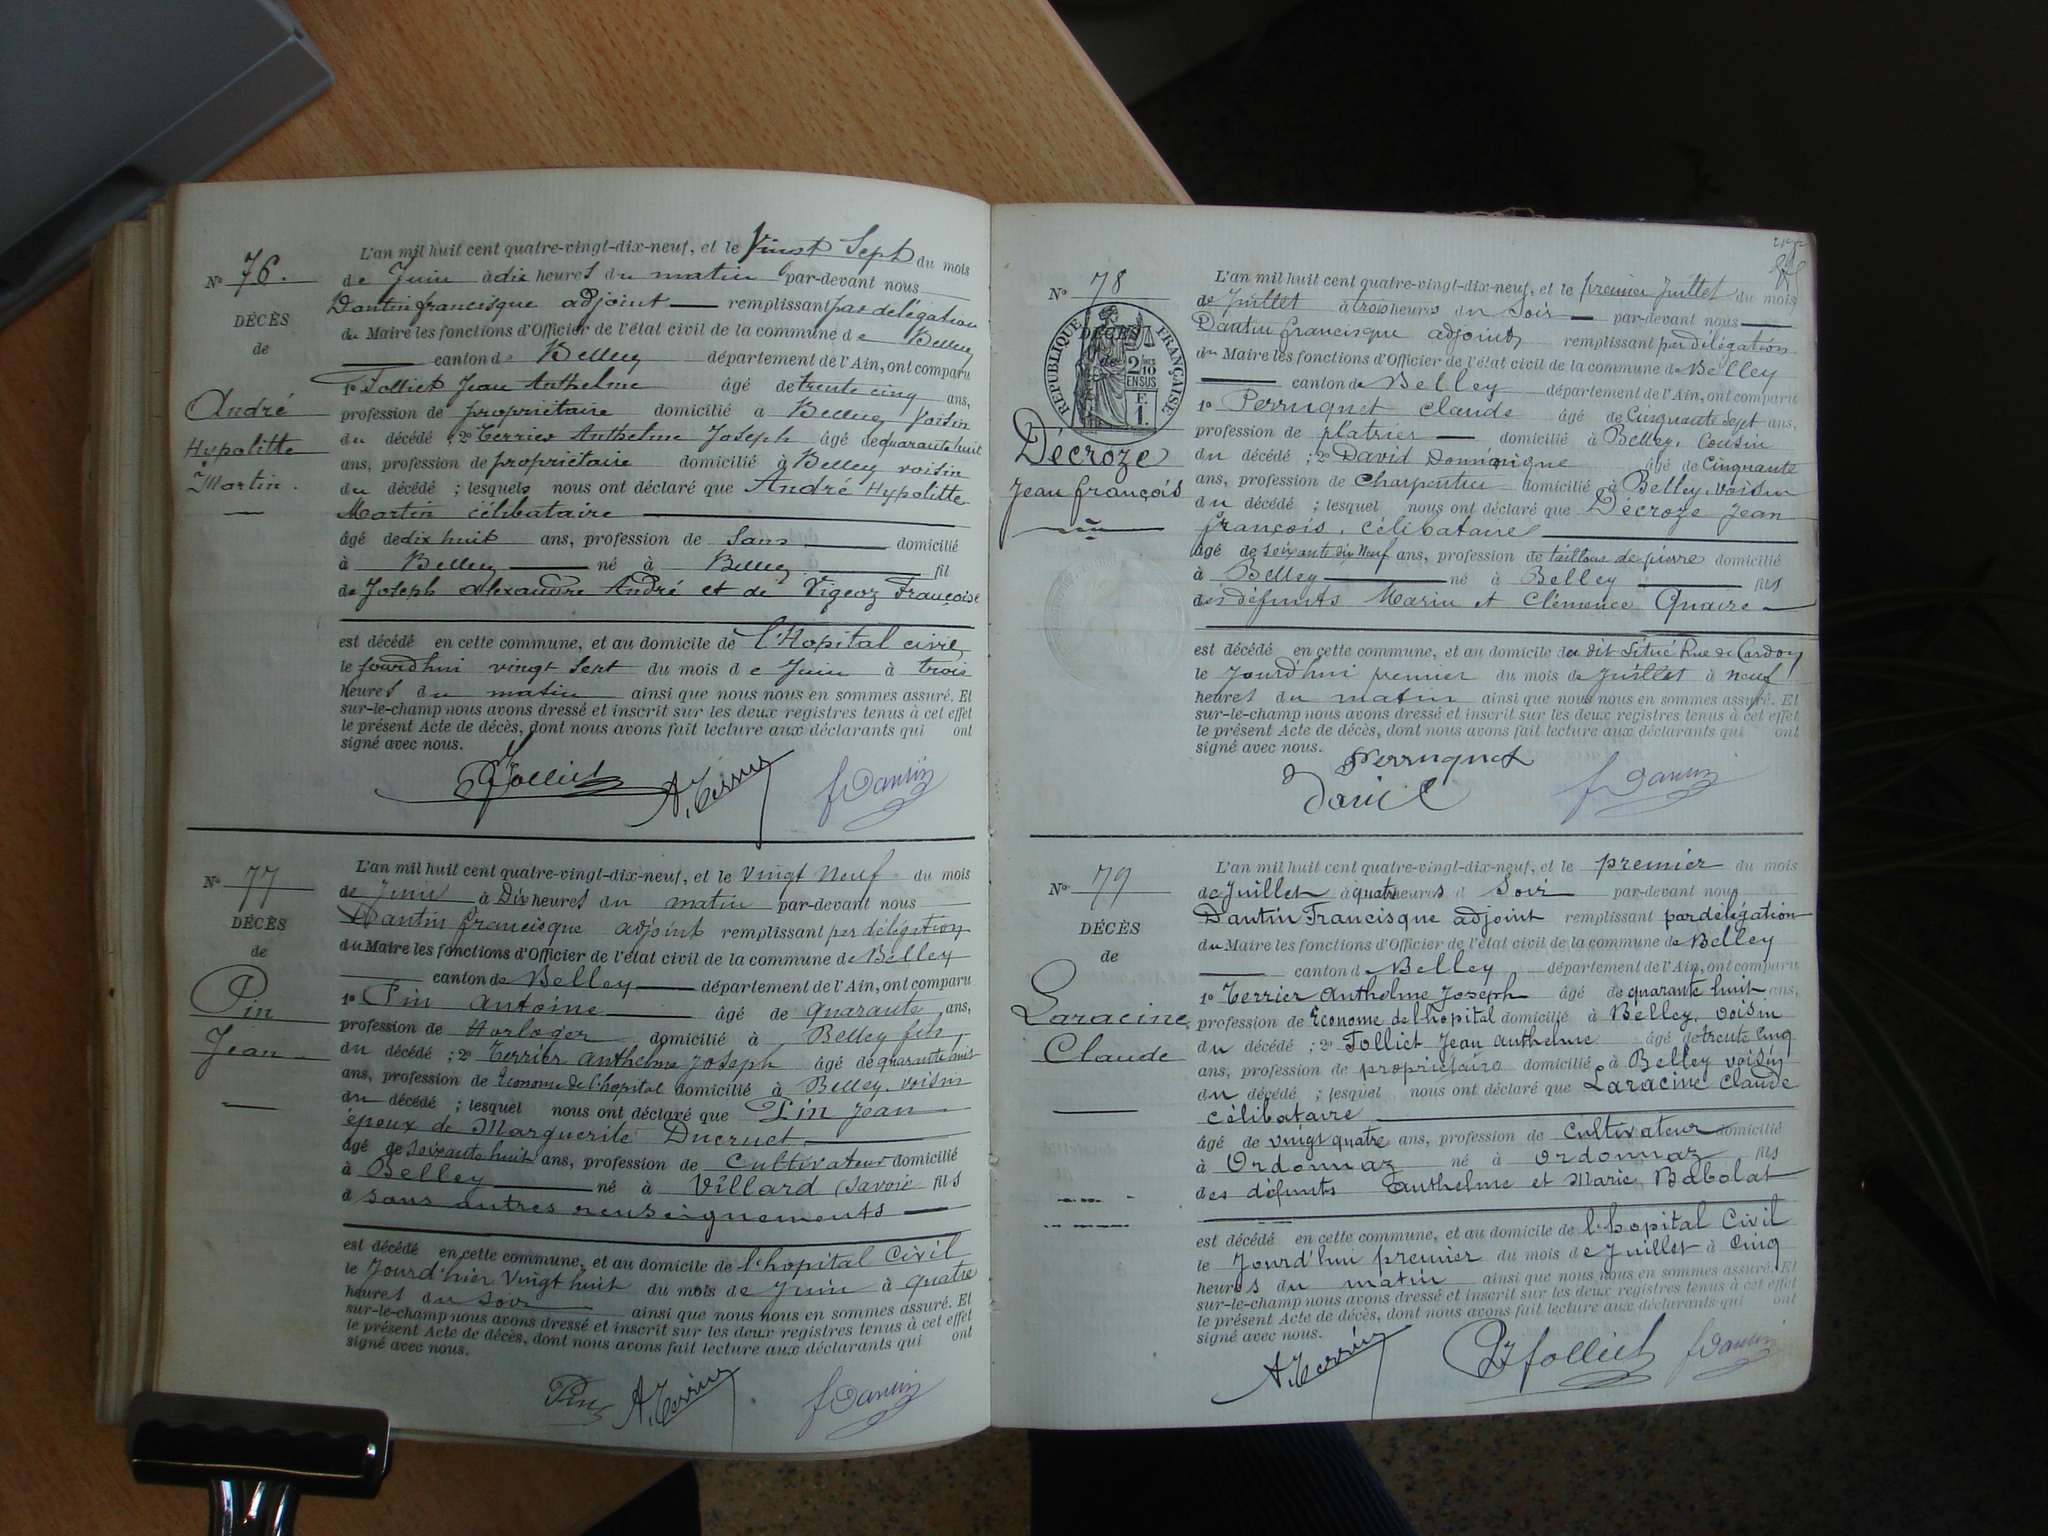 L'an mil huit cent quatre-vingt-dix-neuf, et le Vingt Sept du mois
No 76. de Juin à dix heures du matin par-devant nous
Dantin francisque adjoint remplissant par délégation
DÉCÈS du Maire les fonctions d'Officier de l'état civil de la commune de Belley
de canton de Belley département de l'Ain, ont comparu
1o Folliet Jean Anthelme âgé de trente cinq ans,
André profession de propriétaire domicilié à Belley voisin
Hypolitte du décédé ; 2o Terrier Anthelme Joseph âgé de quarante huit
ans, profession de propriétaire domicilié à Belley voisin
Martin. du décédé ; lesquels nous ont déclaré que André Hypolitte
Martin célibataire
âgé de dix huit ans, profession de Sans domicilié
à Belley né à Belley fil
de Joseph Alexandre André et de Vigeoz Françoise
est décédé en cette commune, et au domicile de l'Hopital civil
le jourd'hui vingt sept du mois de Juin à trois
heures du matin ainsi que nous nous en sommes assuré. Et
sur-le-champ nous avons dressé et inscrit sur les deux registres tenus à cet effet
le présent Acte de décès, dont nous avons fait lecture aux déclarants qui ont
signé avec nous.
Folliet A. Terrier f Dantin
L'an mil huit cent quatre-vingt-dix-neuf, et le Vingt Neuf du mois
No 77 de Juin à Dix heures du matin par-devant nous
DÉCÈS Dantin francisque adjoint remplissant par délégation
de du Maire les fonctions d'Officier de l'état civil de la commune de Belley
canton de Belley département de l'Ain, ont comparu
Pin 1o Pin Antoine âgé de Quarante ans,
profession de Horloger domicilié à Belley fils
Jean du décédé ; 2o Terrier Anthelme Joseph âgé de quarante huit
ans, profession de Econome de l'hopital domicilié à Belley. voisin
du décédé ; lesquel nous ont déclaré que Pin Jean
époux de Marguerite Ducruet
âgé de soixante huit ans, profession de Cultivateur domicilié
à Belley né à Villard (Savoie fils
d sans autres renseignements
est décédé en cette commune, et au domicile de l'hopital Civil
le Jourd'hier Vingt huit du mois de Juin à quatre
heures du soir ainsi que nous nous en sommes assuré. Et
sur-le-champ nous avons dressé et inscrit sur les deux registres tenus à cet effet
le présent Acte de décès, dont nous avons fait lecture aux déclarants qui ont
signé avec nous.
Pin A. Terrier f Dantin
L'an mil huit cent quatre-vingt-dix-neuf, et le premier Juillet du mois
No 78 de Juillet à trois heures du Soir par-devant nous
Dantin francisque adjoint remplissant par délégation
DÉCÈS du Maire les fonctions d'Officier de l'état civil de la commune de Belley
de canton de Belley département de l'Ain, ont comparu
RÉPUBLIQUE FRANÇAISE
2/10 EN SUS
F. 1.
1o Perruquet Claude âgé de Cinquante sept ans,
profession de platrier domicilié à Belley, Cousin
Décroze du décédé ; 2o David Dominique âgé de Cinquante
ans, profession de Charpentier domicilié à Belley. voisin
Jean françois du décédé ; lesquel nous ont déclaré que Décroze Jean
françois. célibataire
âgé de soixante dix Neuf ans, profession de tailleur de pierre domicilié
à Belley né à Belley fils
des défunts Marin et Clémence Quaire
est décédé en cette commune, et au domicile du dit Situé Rue de
le Jourd'hui premier du mois de Juillet à neuf
heures du matin ainsi que nous nous en sommes assuré. Et
sur-le-champ nous avons dressé et inscrit sur les deux registres tenus à cet effet
le présent Acte de décès, dont nous avons fait lecture aux déclarants qui ont
signé avec nous.
Perruquet
David f Dantin
L'an mil huit cent quatre-vingt-dix-neuf, et le premier du mois
No 79 de Juillet à quatre heures d Soir par-devant nous
DÉCÈS Dantin Francisque adjoint remplissant par délégation
du Maire les fonctions d'Officier de l'état civil de la commune de Belley
de canton de Belley département de l'Ain, ont comparu
1o Terrier Anthelme Joseph âgé de quarante huit ans,
Laracine profession de Econome de l'hopital domicilié à Belley. voisin
Claude du décédé ; 2o Folliet Jean Anthelme âgé de trente cinq
ans, profession de propriétaire domicilié à Belley voisin
du décédé ; lesquel nous ont déclaré que Laracine Claude
célibataire
âgé de vingt quatre ans, profession de Cultivateur domicilié
à Ordonnaz né à Ordonnaz fils
des défunts Anthelme et Marie Babolat
est décédé en cette commune, et au domicile de l'hopital Civil
le Jourd'hui premier du mois de Juillet à Cinq
heures du matin ainsi que nous nous en sommes assuré. Et
sur-le-champ nous avons dressé et inscrit sur les deux registres tenus à cet effet
le présent Acte de décès, dont nous avons fait lecture aux déclarants qui ont
signé avec nous.
A. Terrier Folliet f Dantin